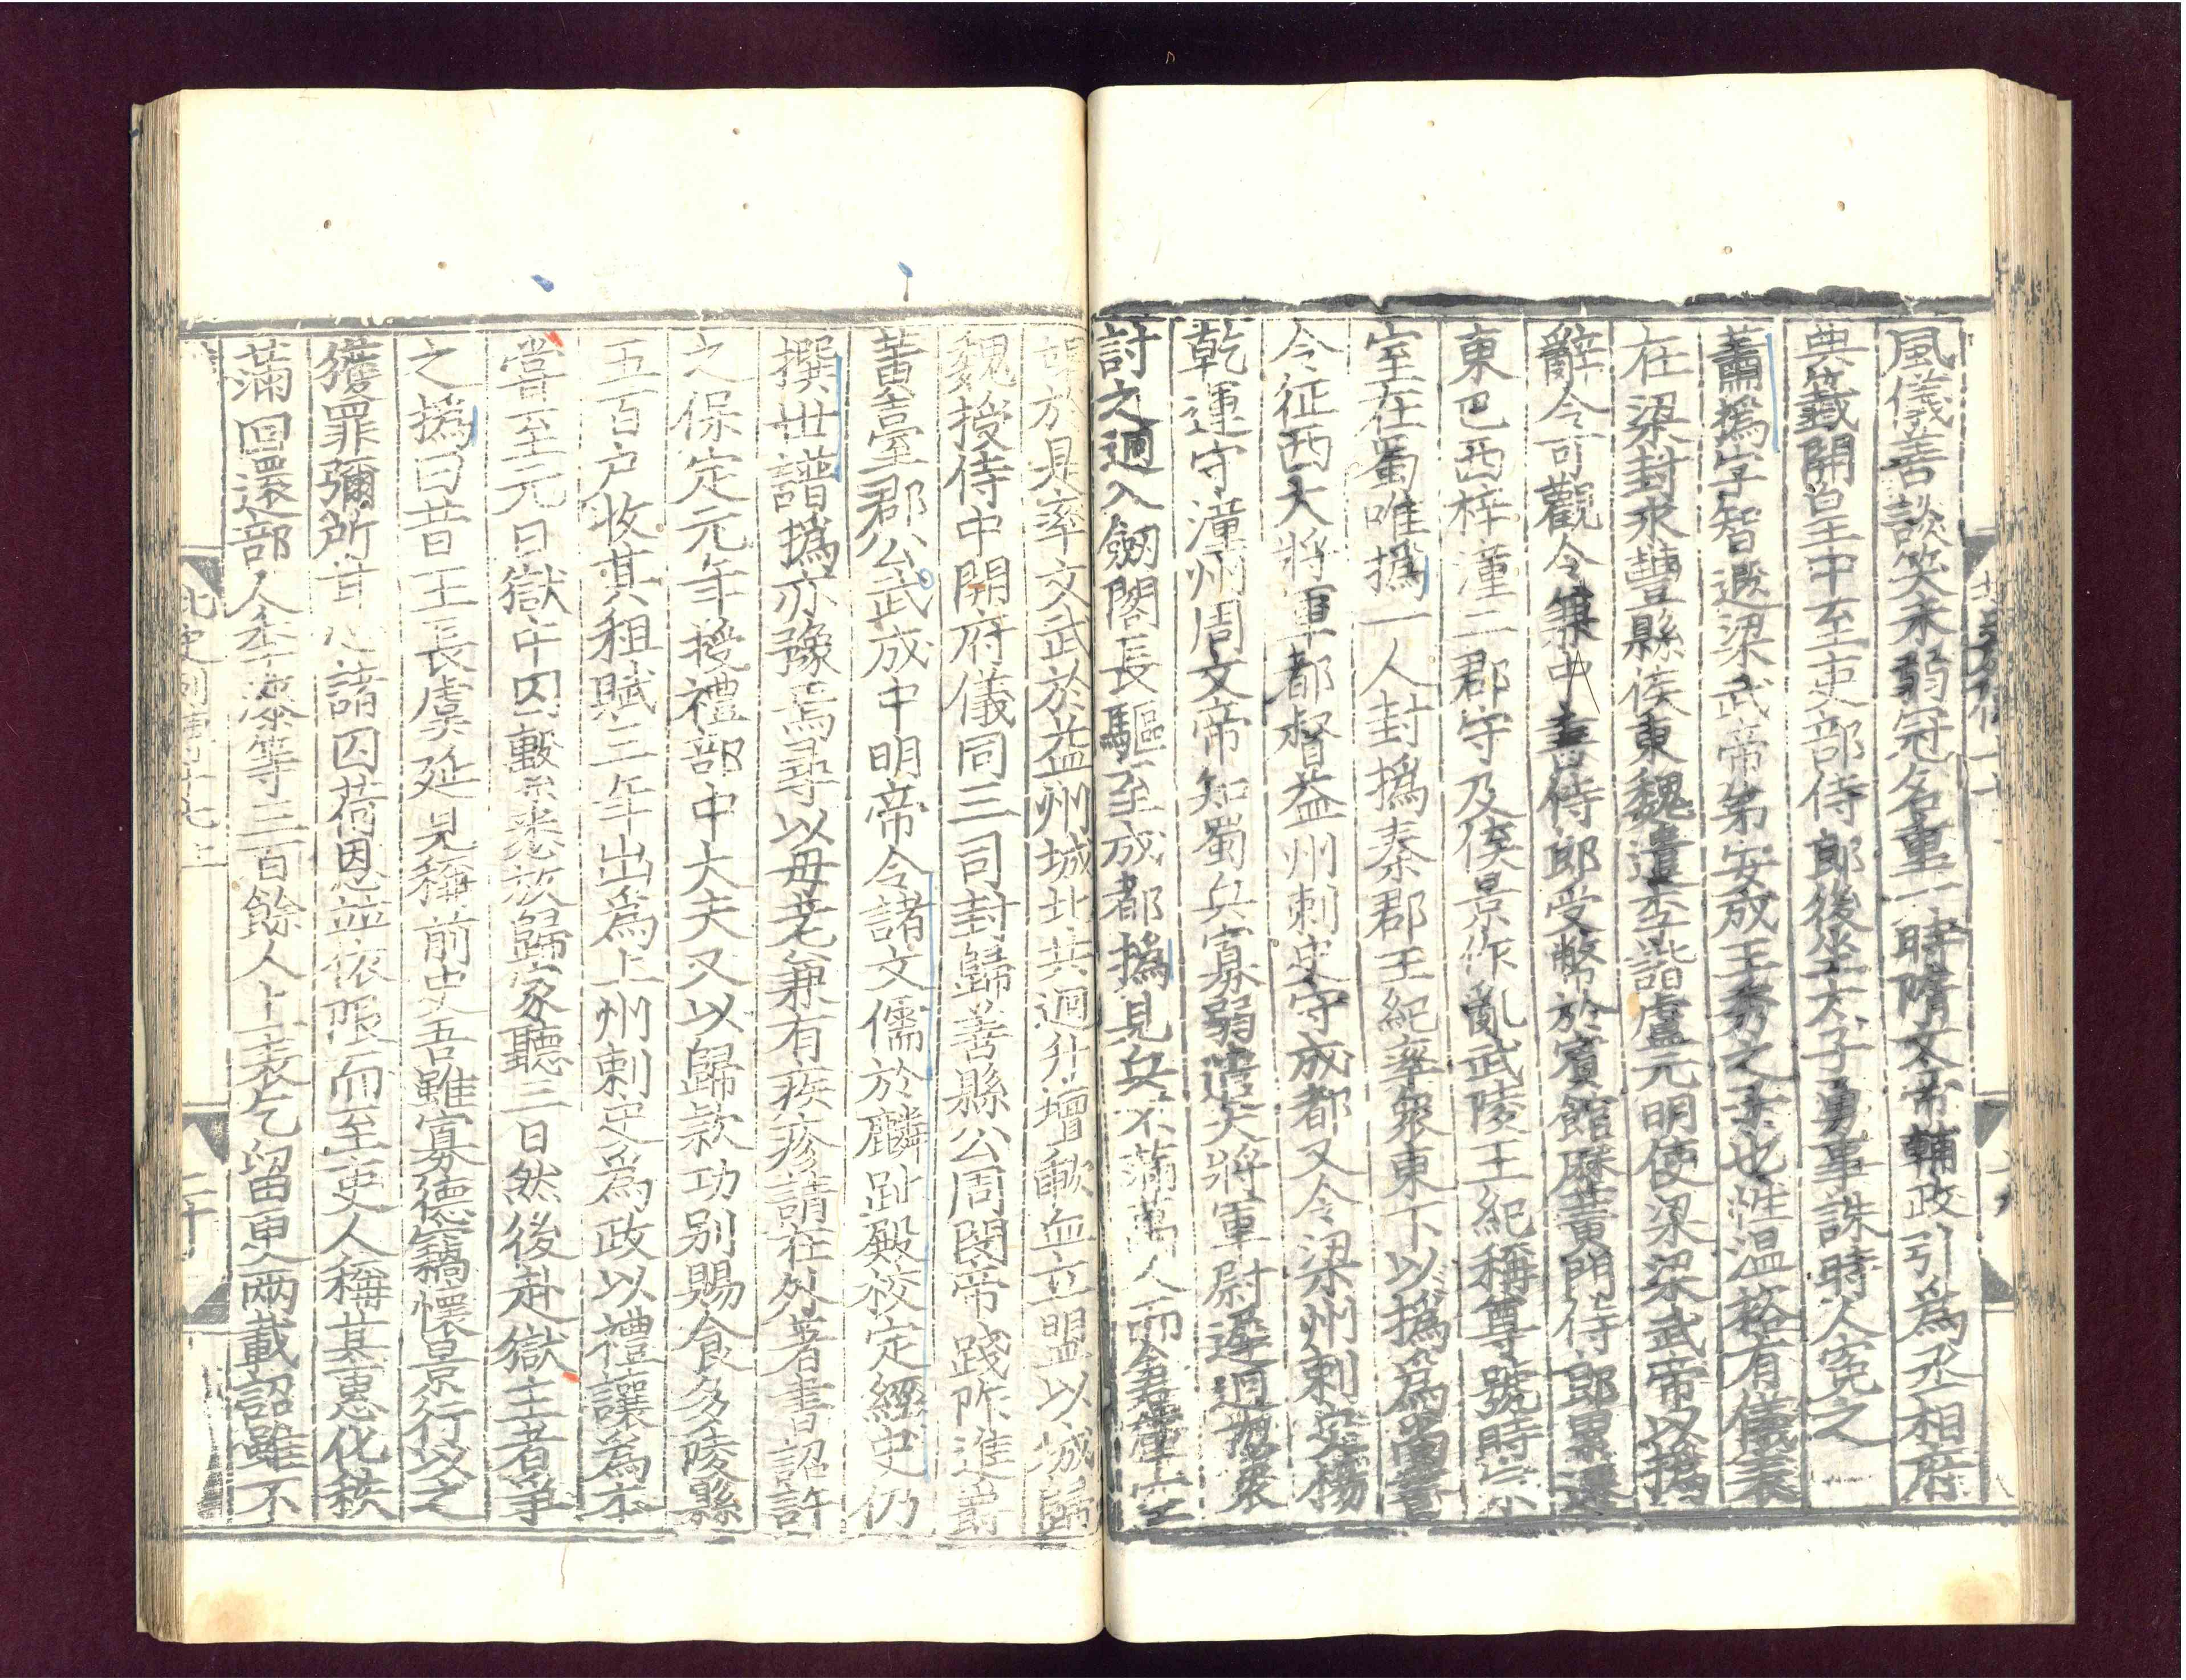 風儀善談笑未弱冠名重一時隋文帝輔政引爲丞相府
典籤開皇中至吏部侍郎後坐太子勇事誅時人寃之
蕭撝字智遐梁武帝弟安成王秀之子也性温裕有儀表
在梁封永豐縣侯東魏遣李諧盧元明使梁梁武帝以撝
辭令可觀令兼中書侍郎受幣於賓館歷黄門侍郎累遷
東巴西梓潼二郡守及侯景作亂武陵王紀稱尊號時宗
室在蜀唯撝一人封撝秦郡王紀率衆東下以撝爲尚書
令征西大將軍都督益州刺史守成都又令梁州刺史楊
乾運守潼州周文帝知蜀兵寡弱遣大將軍尉遲迥揔衆
討之迥入劒閣長驅至成都撝見兵不滿萬人而倉庫空
竭於是率文武於益州城北共迥升壇歃血立盟以城歸
魏授侍中開府儀同三司封歸善縣公周閔帝踐阼進爵
黄臺郡公武成中明帝令諸文儒於麟趾殿校定經史仍
撰世譜撝亦豫焉尋以母老兼有疾疹請在外著書詔許
之保定元年授禮部中大夫又以歸款功别賜食多陵縣
五百户收其租賦三年出爲上州刺史爲政以禮讓爲本
嘗至元日獄中囚繫悉放歸家聽三日然後赴獄主者爭
之撝曰昔王長虞延見稱前史吾雖寡德竊懷景行以之
獲罪彌所甘心諸囚荷恩並依限而至吏人稱其惠化秩
滿囬還部人李漆等三百餘人上表乞留更兩載詔雖不
北史列傳十七上
二十